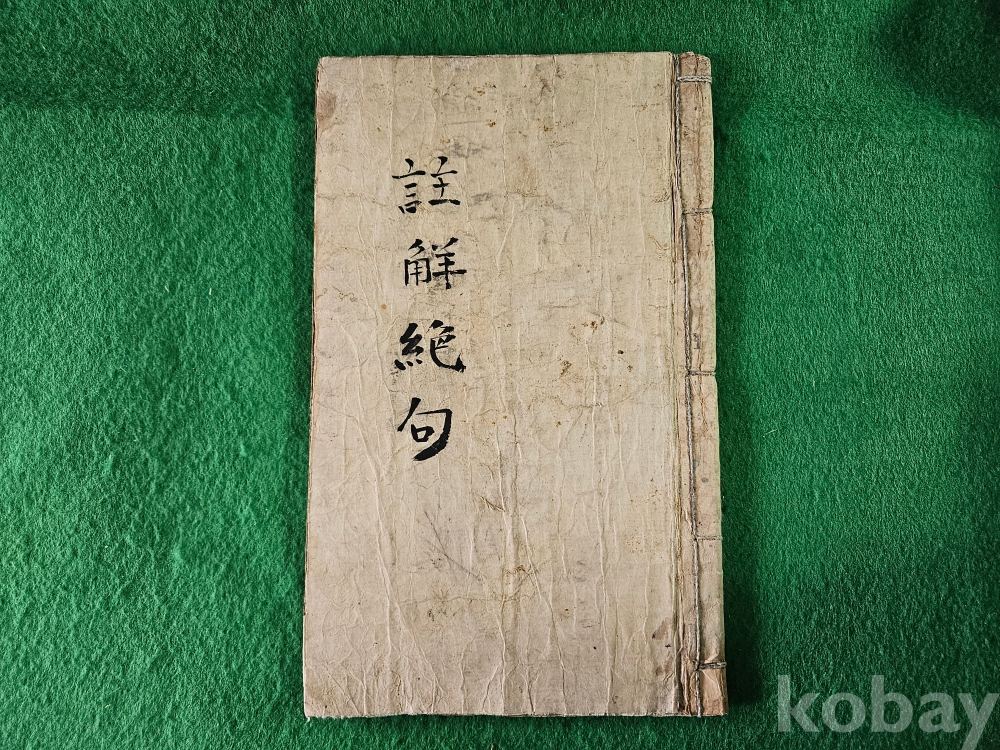 註觧絶句
kobay